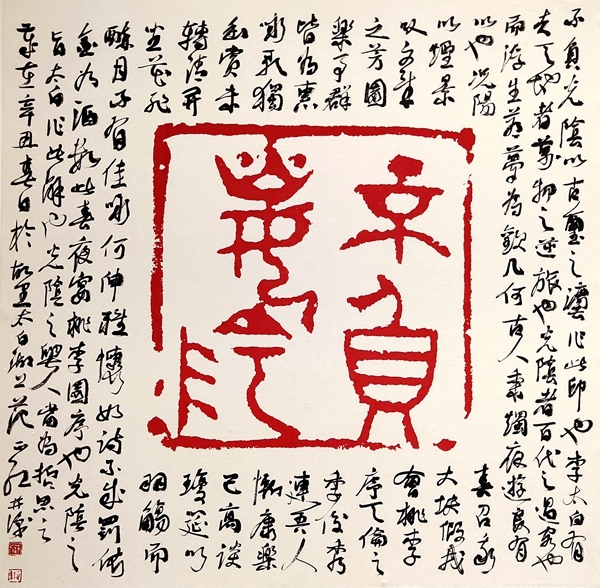 不負光陰以古璽之灋作此印也李太白有
夫天地者萬物之逆旅也光陰者百代之過客也
而浮生若夢為歡几何古人秉燭夜遊良有
以也況陽
春召我
以煙景
大塊假我
以文章
會桃李
之芳園
序天倫之
樂事群
季俊秀
皆為惠
連吾人
咏歌獨
慚康樂
幽賞未
已高談
轉清開
瓊筵以
坐花飛
羽觴而
醉月不有佳咏何伸雅懷如詩不成罰依
金谷酒數此春夜宴桃李園序也光陰之
旨太白作此辭光陰之人當為哲思之
歲在辛丑春日於故里太白湖上范正红并識
不負
光陰